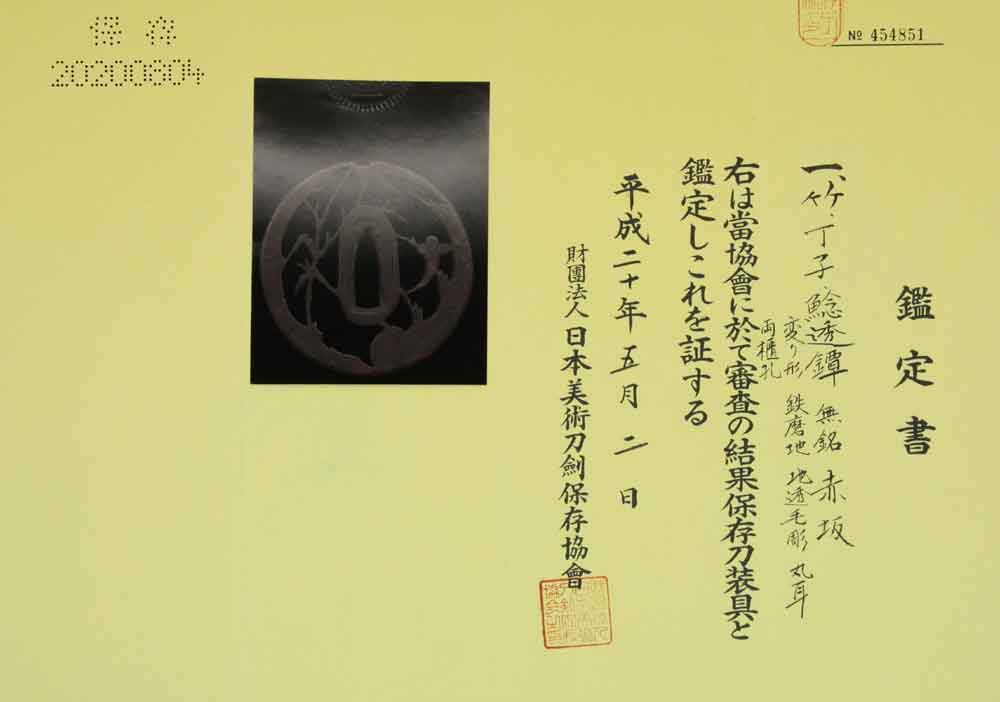 保存
20200804
№ 454851
鑑定書
一、竹、丁子、鯰透鐔 無銘 赤坂
変り形 鉄磨地 地透毛彫 丸耳
両櫃孔
右は當協會に於て審査の結果保存刀装具と
鑑定しこれを証する
平成二十年五月二日
財團法人 日本美術刀劍保存協會